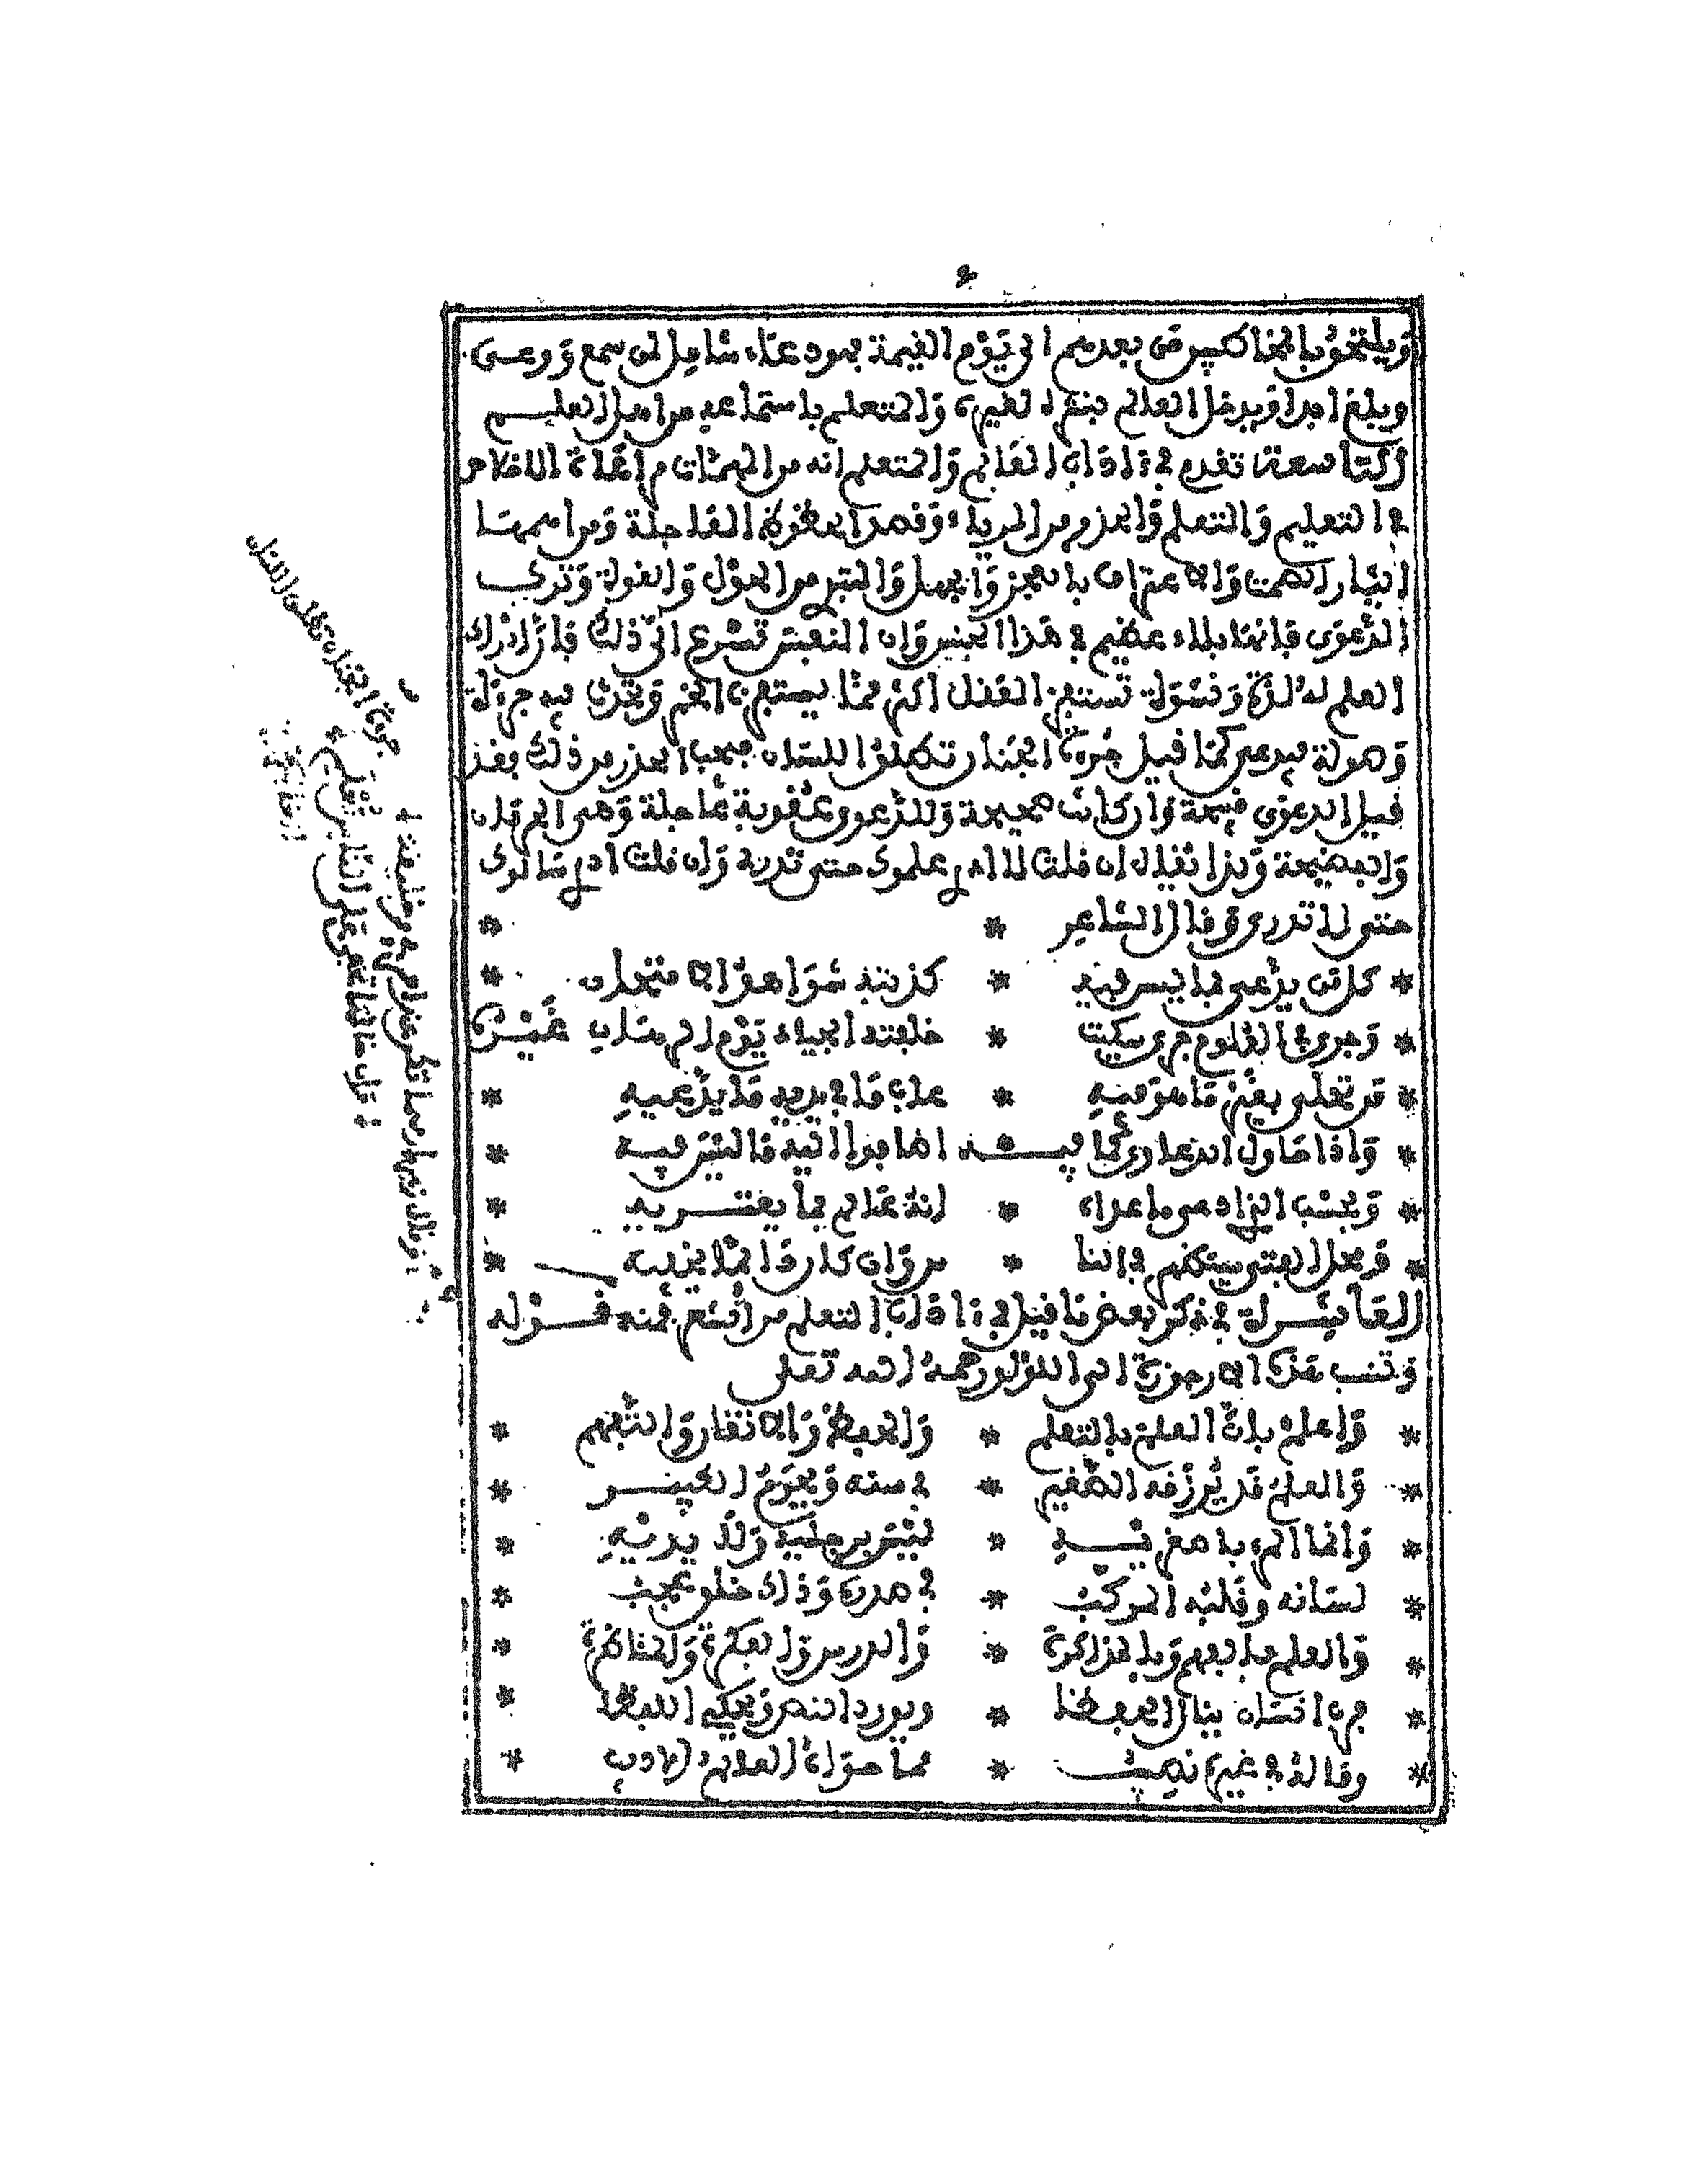 ويلتحق بالمخاطبين من بعدهم الى يوم القيمة فهو دعاء شامل لمن سمع ووعى
وبلغ ابدا ويدخل العالم بنقله لغيره والمتعلم باستماعه من اهل العلم
تقدم في ءاداب العالم والمتعلم انه من المهمات مراعاة الاخلاص
في التعليم والتعلم والحزم من الرياء وقصد الحظوظ العاجلة ومن اهمها
ايثار الصمت والاعتراف بالعجز والجهل والتبري من الحول والقوة وترك
الدعوى فانها بلاء عظيم في هذا الجنس وان النفس تسرع الى ذلك فان لادراك
العلم له لذة ونشوة تستفز العقل اكثر مما يستفزه الخمر وتحدث فيه جرءة
وصولة فيدعي كما قيل جرءة الجنان تطلق اللسان فيجب الحذر من ذلك فقد
قيل الدعوى قبيحة وان كانت صحيحة وللدعوى عقوبة عاجلة وهي الحرمان
والفضيحة ولذا يقال ان قلت لا ادري علموك حتى تدري وان قلت ادري سالوك
حتى لا تدري وقال الشاعر
* كل من يدعي بما ليس فيه * كذبته شواهد الامتحان *
* وجرى في العلوم جري سكيت * خلفته الجياد يوم الرهان
* من تحلى بغير ما هو فيه * عاب ما في يديه ما يدعيه *
* واذا حاول الدعاوى لما فيه اضافوا اليه ما ليس فيه *
* ويحسب الذي ادعى ما عداه * انه عالم بما يفتريه *
* ومحل الفتى سيظهر في الناس وان كان دائما يخفيه *
الفائدة في ذكر بعض ما قيل في ءاداب التعلم من الشعر فمنه قوله
وتنسب هذه الارجوزة الى اللؤلؤي رحمه الله تعلى
* واعلم بان العلم بالتعلم * والحفظ والاتقان والتفهم *
* والعلم قد يرزقه الصغير * في سنه ويحرم الكبير *
* وانما المرء باصغريه * ليس برجليه ولا يديه *
* لسانه وقلبه المركب * في صدره وذاك خلق عجب *
* والعلم بالفهم وبالمذاكرة * والدرس والفكرة والمناظرة *
* فرب انسان ينال الحفظا * ويورد النص ويحكي اللفظا *
* وما له في غيره نصيب * مما حواه العالم الاديب *